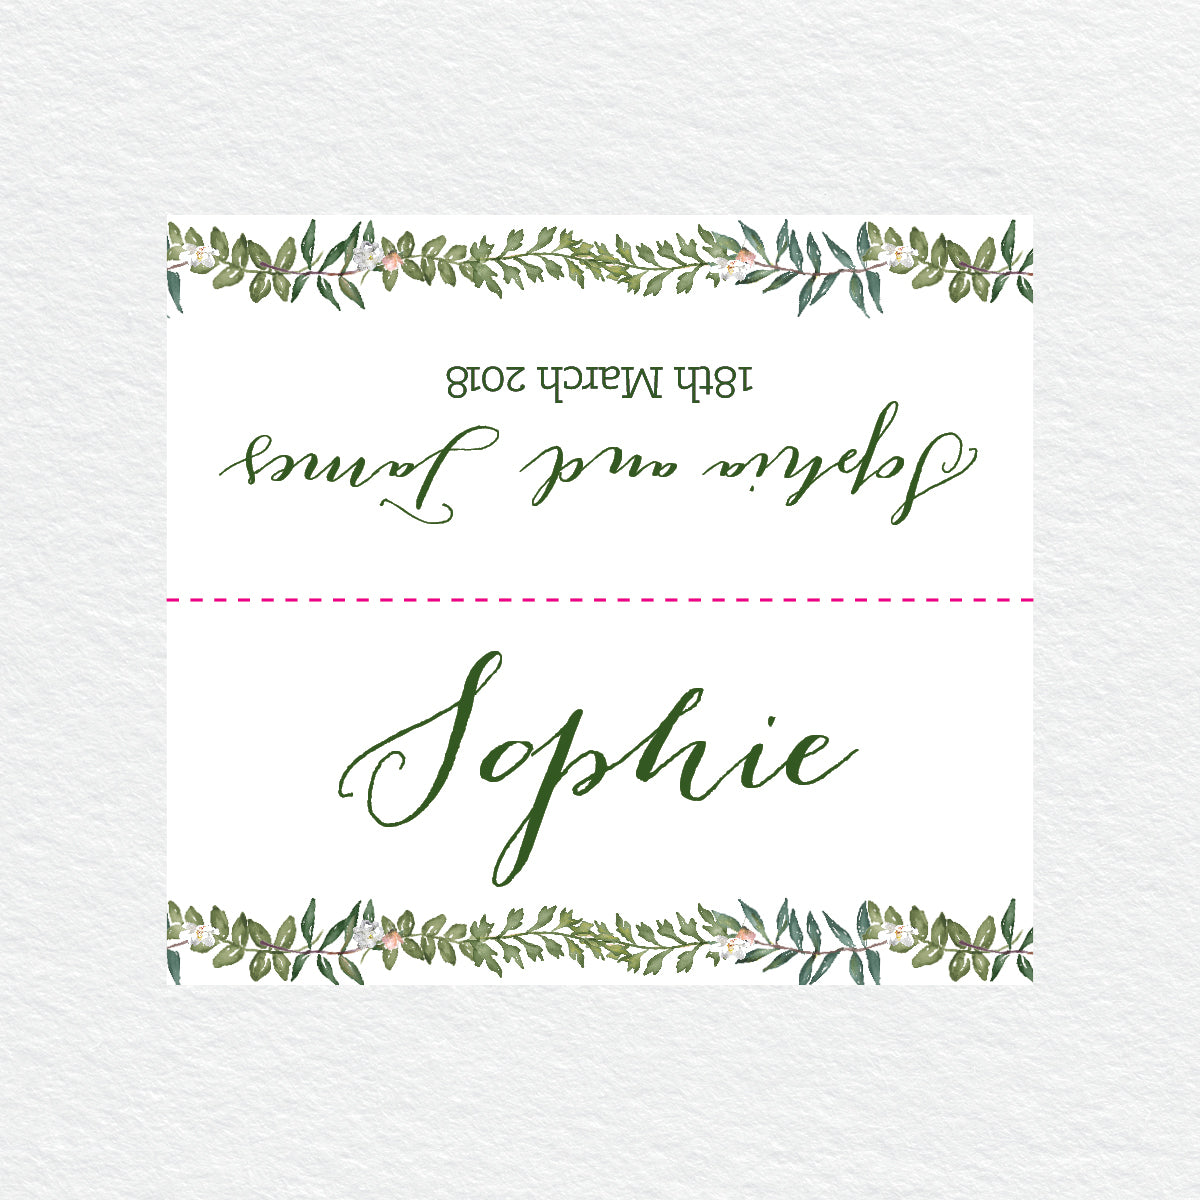 18th March 2018
Sophie and James
Sophie